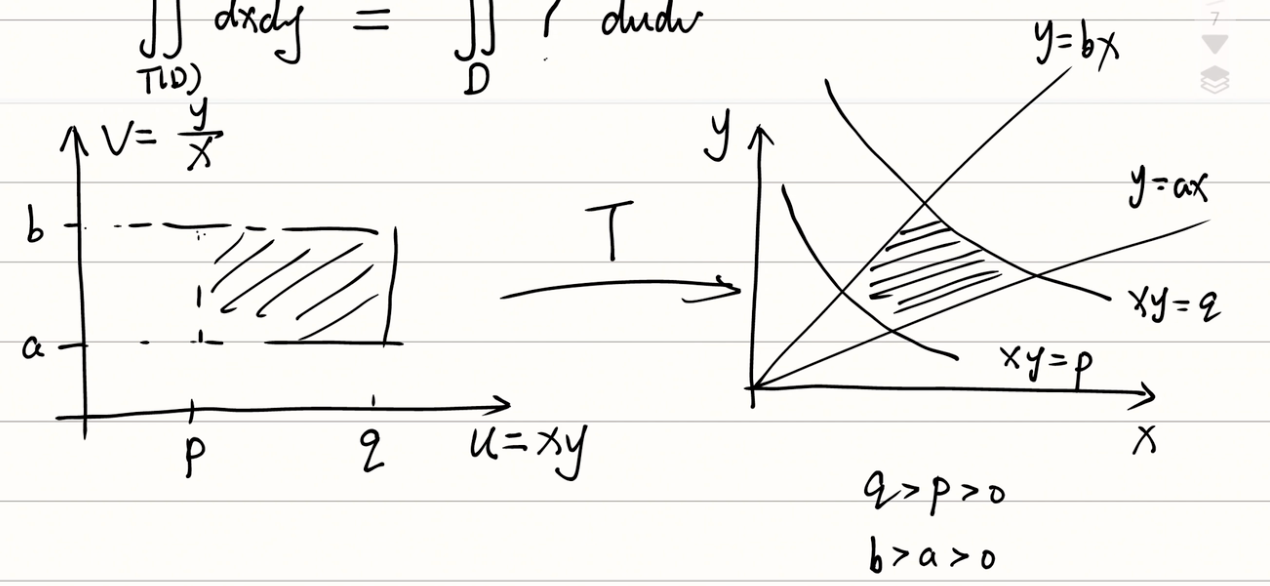 ∬ dxdy = ∬ ? dudv
T(D) D
V = y/x
b
a
p
q
u = xy
T
y
y = bx
y = ax
xy = q
xy = p
x
q > p > 0
b > a > 0
7